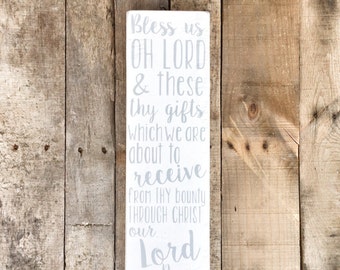 Bless us
OH LORD
& these
thy gifts
which we are
about to
receive
FROM THY BOUNTY
THROUGH CHRIST
our
Lord